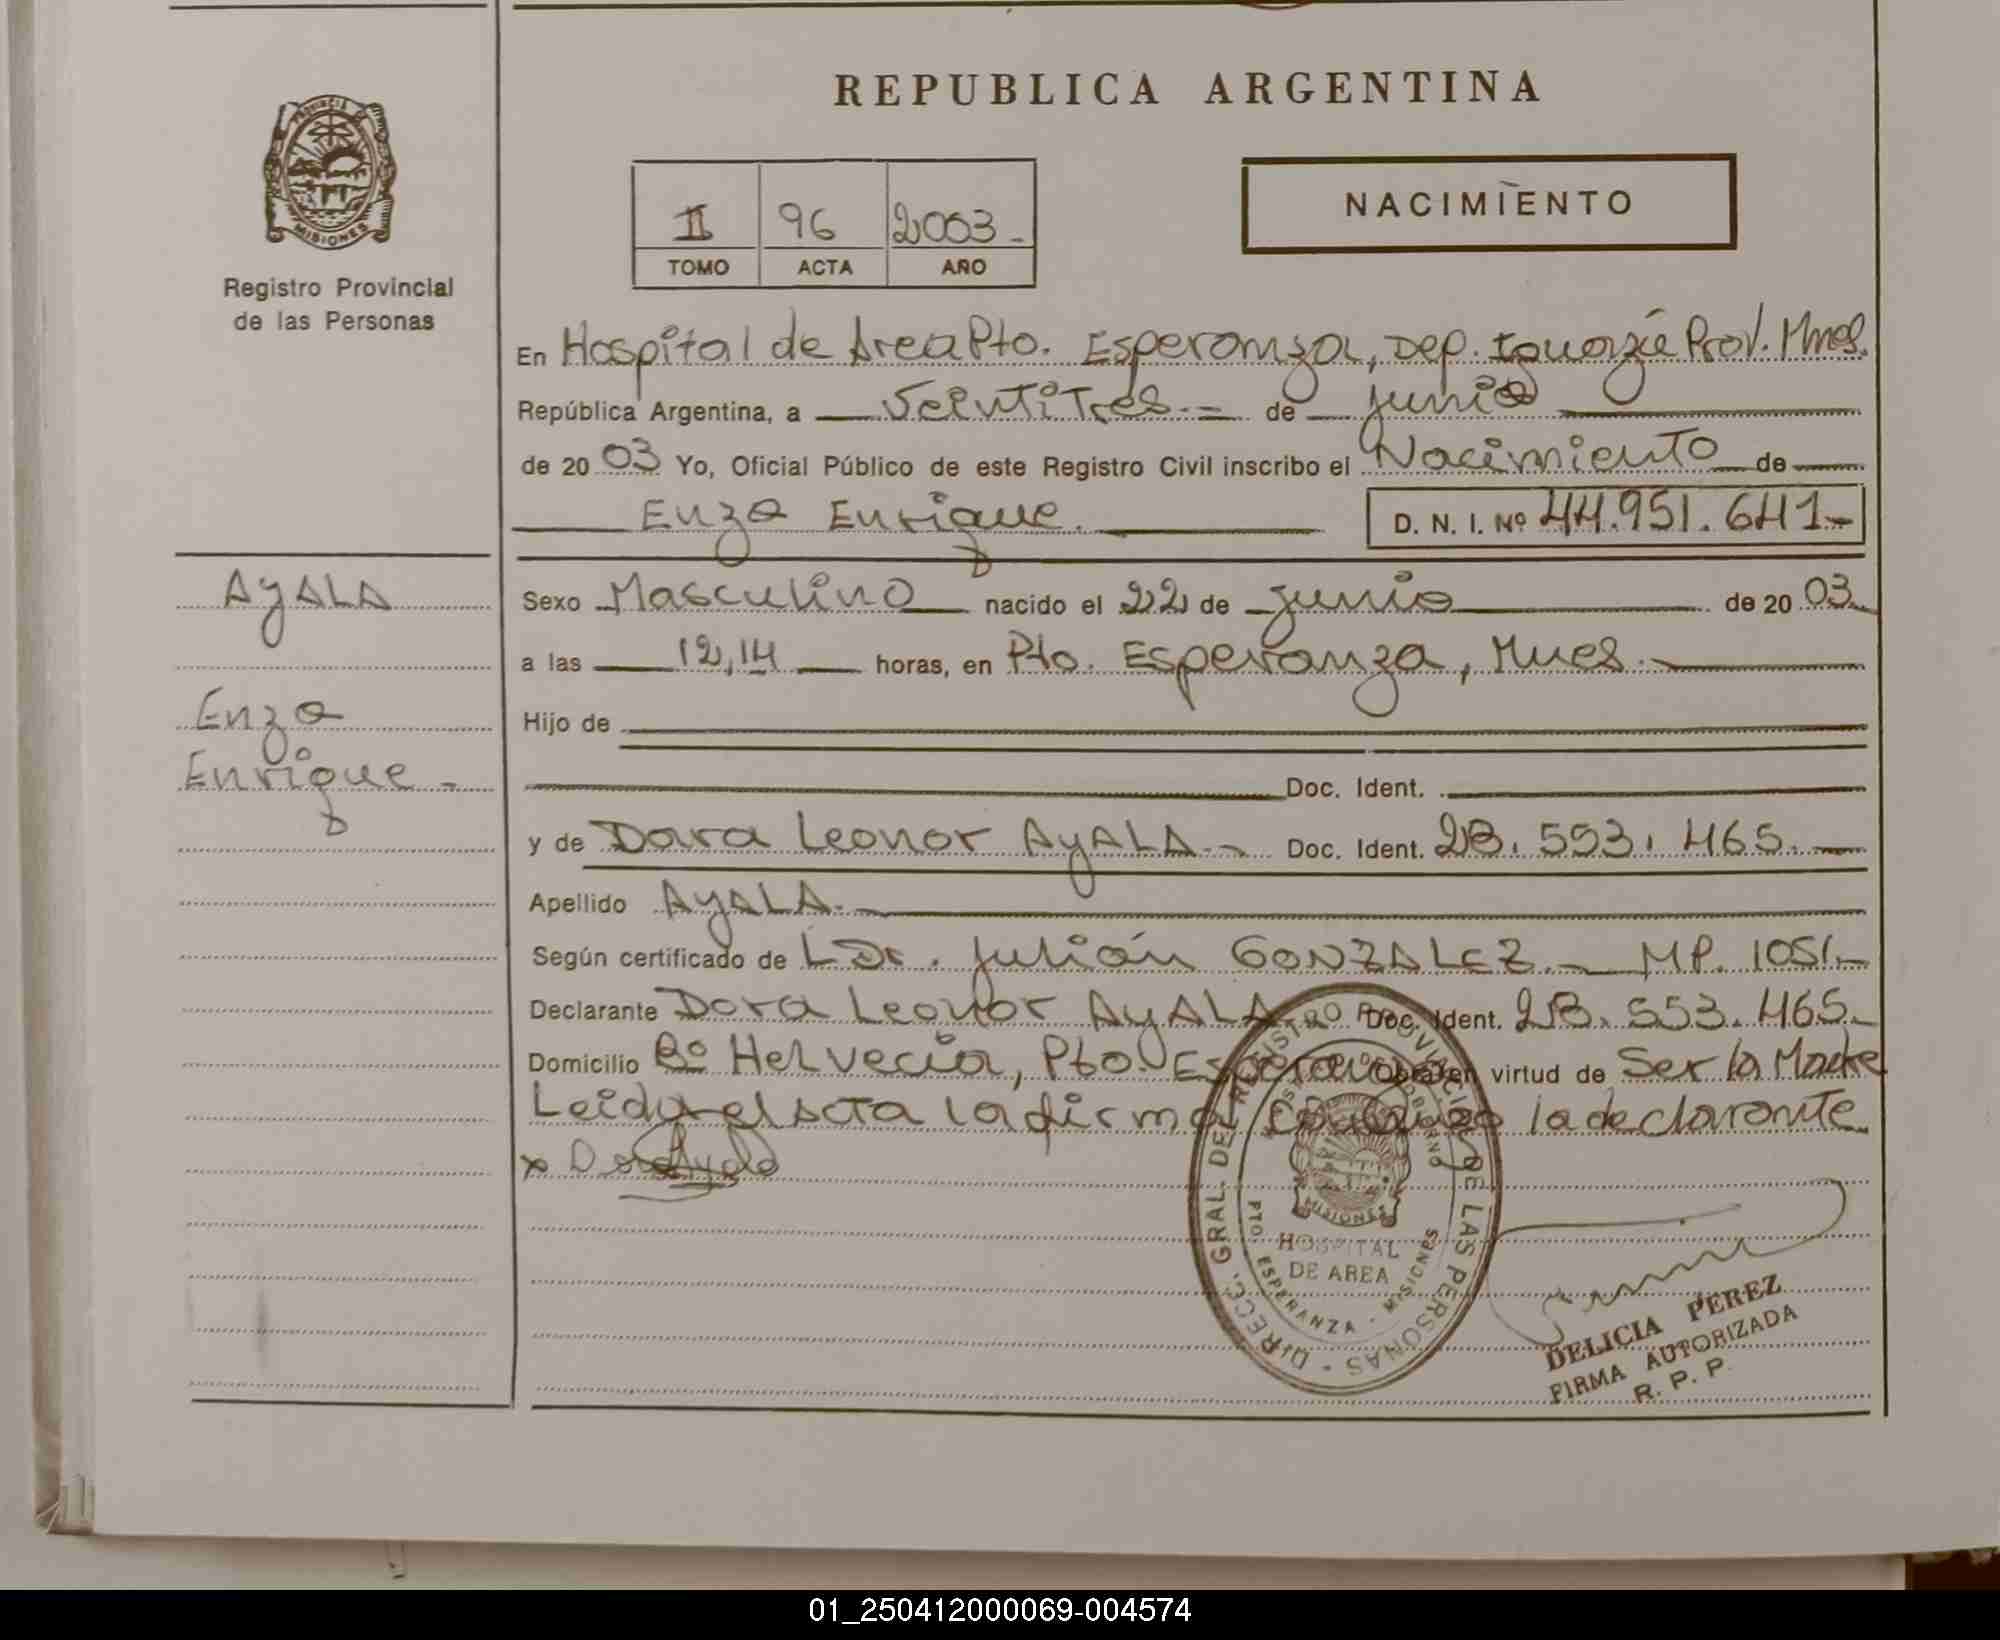 REPUBLICA ARGENTINA
PROVINCIA
MISIONES
Registro Provincial
de las Personas
II 96 2003
TOMO ACTA AÑO
NACIMIENTO
En Hospital de Area Pto. Esperanza, Dep. Iguazú Prov. Mnes.
República Argentina, a Veintitres.- de junio
de 2003 Yo, Oficial Público de este Registro Civil inscribo el Nacimiento de
Enzo Enrique. D. N. I. Nº 44.951.641-
AyALA
Enzo
Enrique-
Sexo Masculino nacido el 22 de junio de 2003
a las 12,14 horas, en Pto. Esperanza, Mnes.
Hijo de
Doc. Ident.
y de Dora Leonor AyALA.- Doc. Ident. 28.553.465.
Apellido AyALA.
Según certificado de L Dr. Julián GONZALEZ.- MP. 1051.-
Declarante Dora Leonor AyALA Doc. Ident. 28.553.465.
Domicilio Bº Helvecia, Pto. Esperanza Obra en virtud de Ser la Madre
Leida el Acta la firma conmigo la declarante
x Dora Ayala
DIRECC. GRAL. DEL REGISTRO PROVINCIAL DE LAS PERSONAS
MISIONES
HOSPITAL
DE AREA
PTO. ESPERANZA - MISIONES
DELICIA PEREZ
FIRMA AUTORIZADA
R. P. P.
01_250412000069-004574